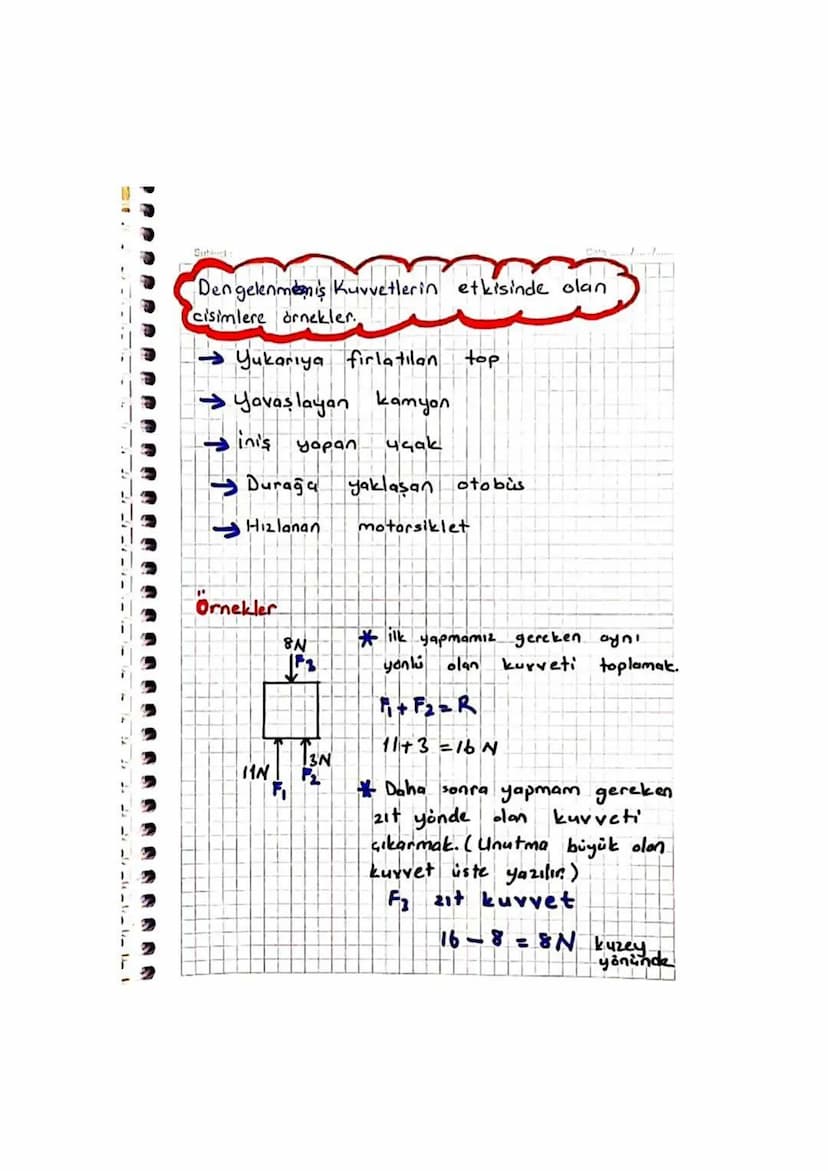 Subject:
Date ..../..../....
Dengelenmemiş Kuvvetlerin etkisinde olan
cisimlere örnekler.
→ Yukarıya fırlatılan top
→ Yavaşlayan kamyon
→ iniş yapan uçak
→ Durağa yaklaşan otobüs
→ Hızlanan motorsiklet
Örnekler
8N
F3
11N
F1
3N
F2
* ilk yapmamız gereken aynı
yönlü olan kuvveti toplamak.
F1 + F2 = R
11+3 = 16 N
* Daha sonra yapmam gereken
zıt yönde olan kuvveti
çıkarmak. (Unutma büyük olan
kuvvet üste yazılır.)
F3 zıt kuvvet
16 - 8 = 8N kuzey
yönünde